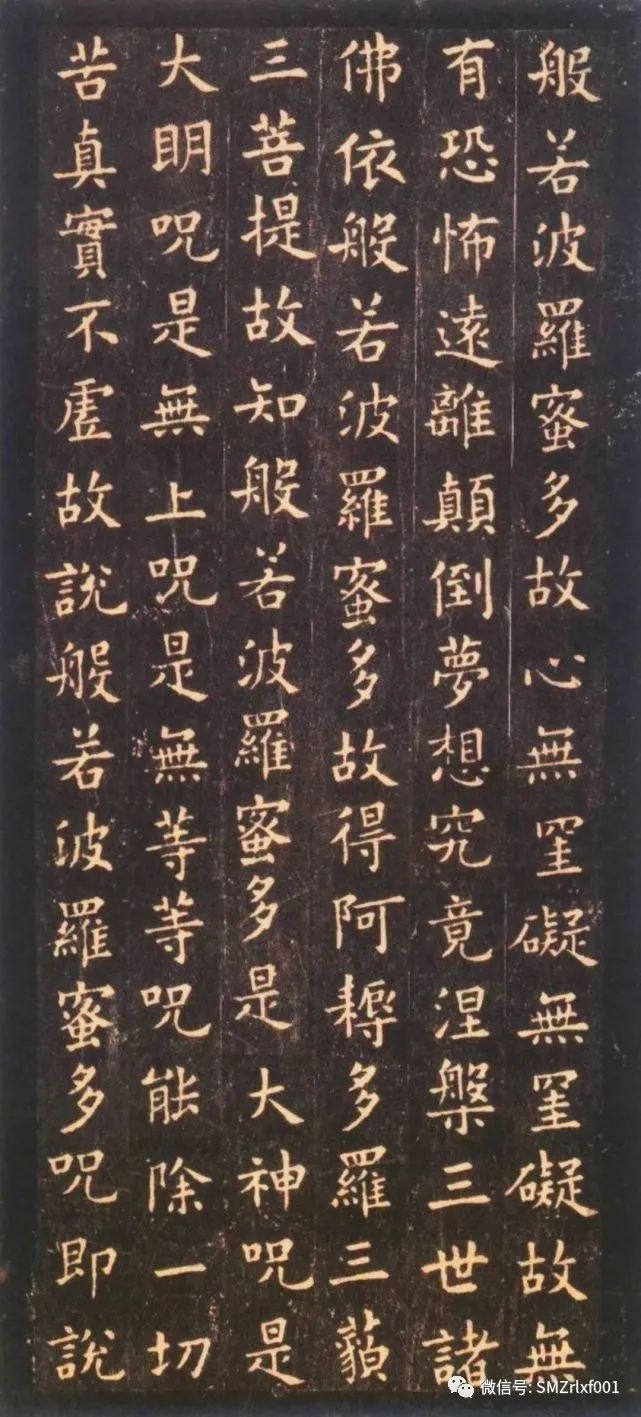 般若波羅蜜多故心無罣礙無罣礙故無
有恐怖遠離顛倒夢想究竟涅槃三世諸
佛依般若波羅蜜多故得阿耨多羅三藐
三菩提故知般若波羅蜜多是大神呪是
大明呪是無上呪是無等等呪能除一切
苦真實不虛故說般若波羅蜜多呪即說
微信号: SMZrlxf001